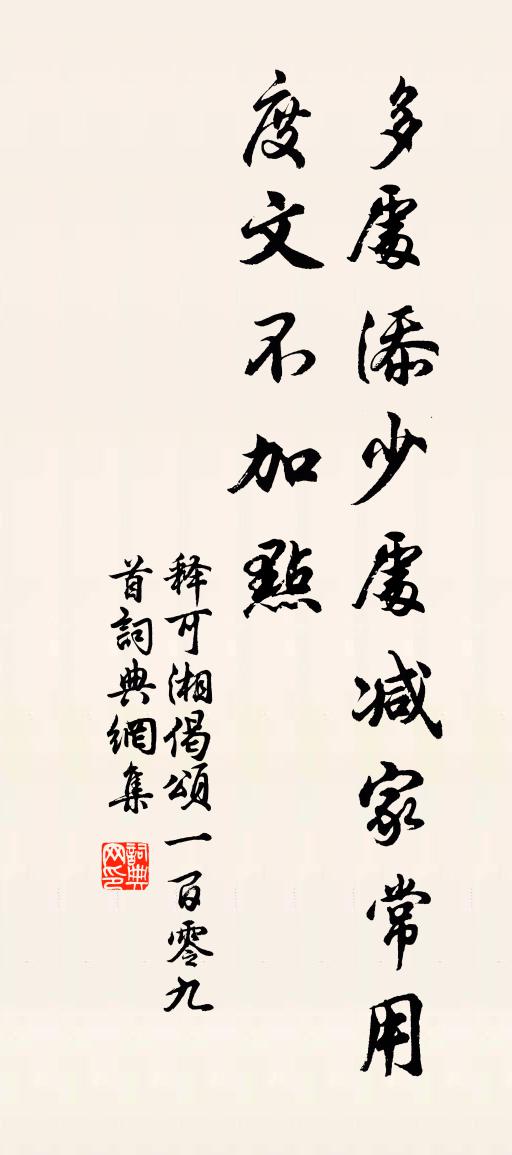 多處添少處减家常用
度文不加點
释可湘偈頌一百零九
首詞典網集
詞典网印